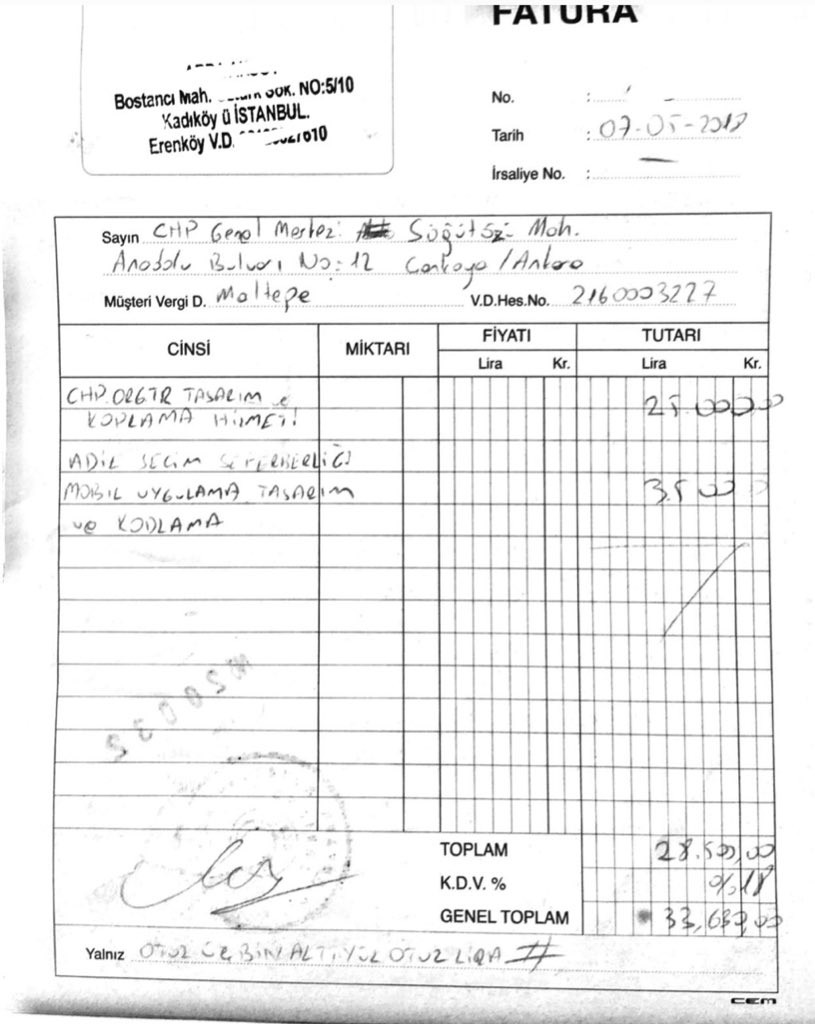 FATURA
Bostancı Mah. Sok. NO:5/10
Kadıköy Ü İSTANBUL.
Erenköy V.D.
No. :
Tarih : 07-05-2018
İrsaliye No. :
Sayın CHP Genel Merkezi Söğütözü Mah.
Anadolu Bulvarı No:12 Çankaya/Ankara
Müşteri Vergi D. Maltepe V.D.Hes.No. 2160003227
CİNSİ MİKTARI FİYATI TUTARI
Lira Kr. Lira Kr.
CHP.ORG.TR TASARIM ve 25.000,00
KODLAMA HİZMETİ
ADİL SEÇİM SEFERBERLİĞİ
MOBİL UYGULAMA TASARIM 3.500
ve KODLAMA
TOPLAM 28.500,00
K.D.V. % %18
GENEL TOPLAM 33,630,00
Yalnız OTUZ ÜÇ BİN ALTI YÜZ OTUZ LİRA #
CEM